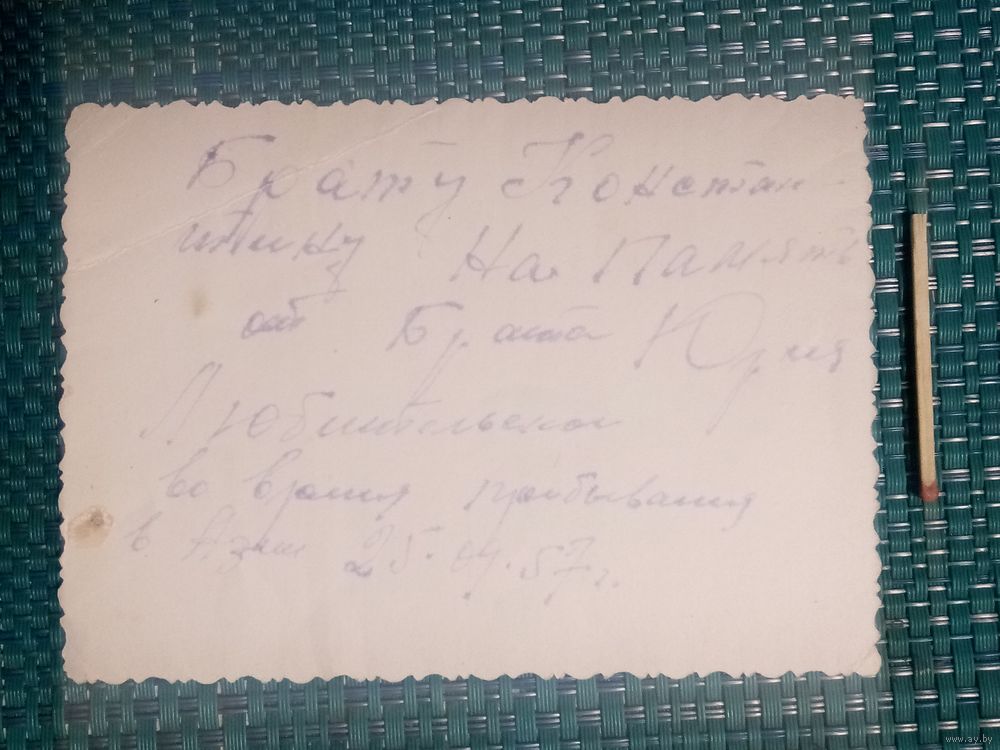 Брату Констан-
тину На Память
от Брата Юрия
Любительская
во время пребывания
в 25.04.57г.
www.ay.by